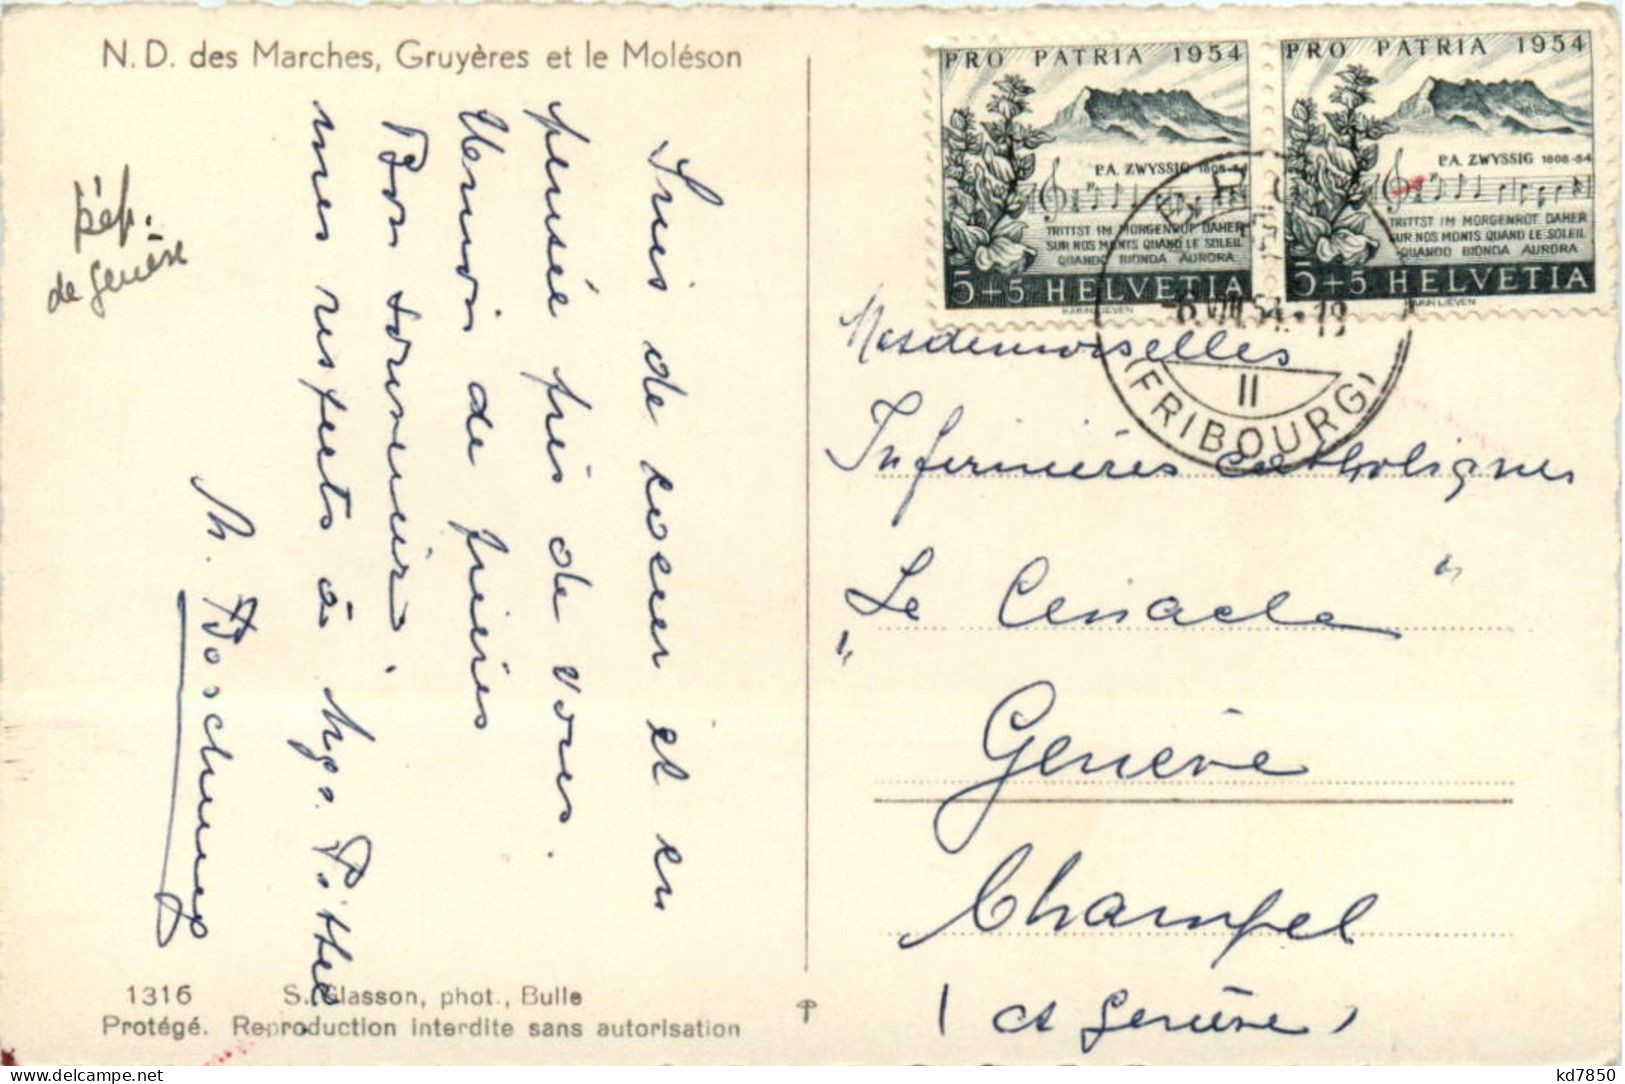 N. D. des Marches, Gruyères et le Moléson
dép.
de Genève
Suis de coeur et en
pensée près de vous.
Union de prières
Bon souvenir.
mes respects à Mgr. Pittet
M. Boschung
1316 S. Glasson, phot., Bulle
Protégé. Reproduction interdite sans autorisation
PRO PATRIA 1954
P.A. ZWYSSIG 1808-54
TRITTST IM MORGENROT DAHER
SUR NOS MONTS QUAND LE SOLEIL
QUANDO BIONDA AURORA
5+5 HELVETIA
KARIN LIEVEN
PRO PATRIA 1954
P.A. ZWYSSIG 1808-54
TRITTST IM MORGENROT DAHER
SUR NOS MONTS QUAND LE SOLEIL
QUANDO BIONDA AURORA
5+5 HELVETIA
KARIN LIEVEN
VIII 54.-19
II
(FRIBOURG)
Mesdemoiselles
Infirmières catholiques
"Le Cénacle"
Genève
Champel
(ct Genève)
kd7850